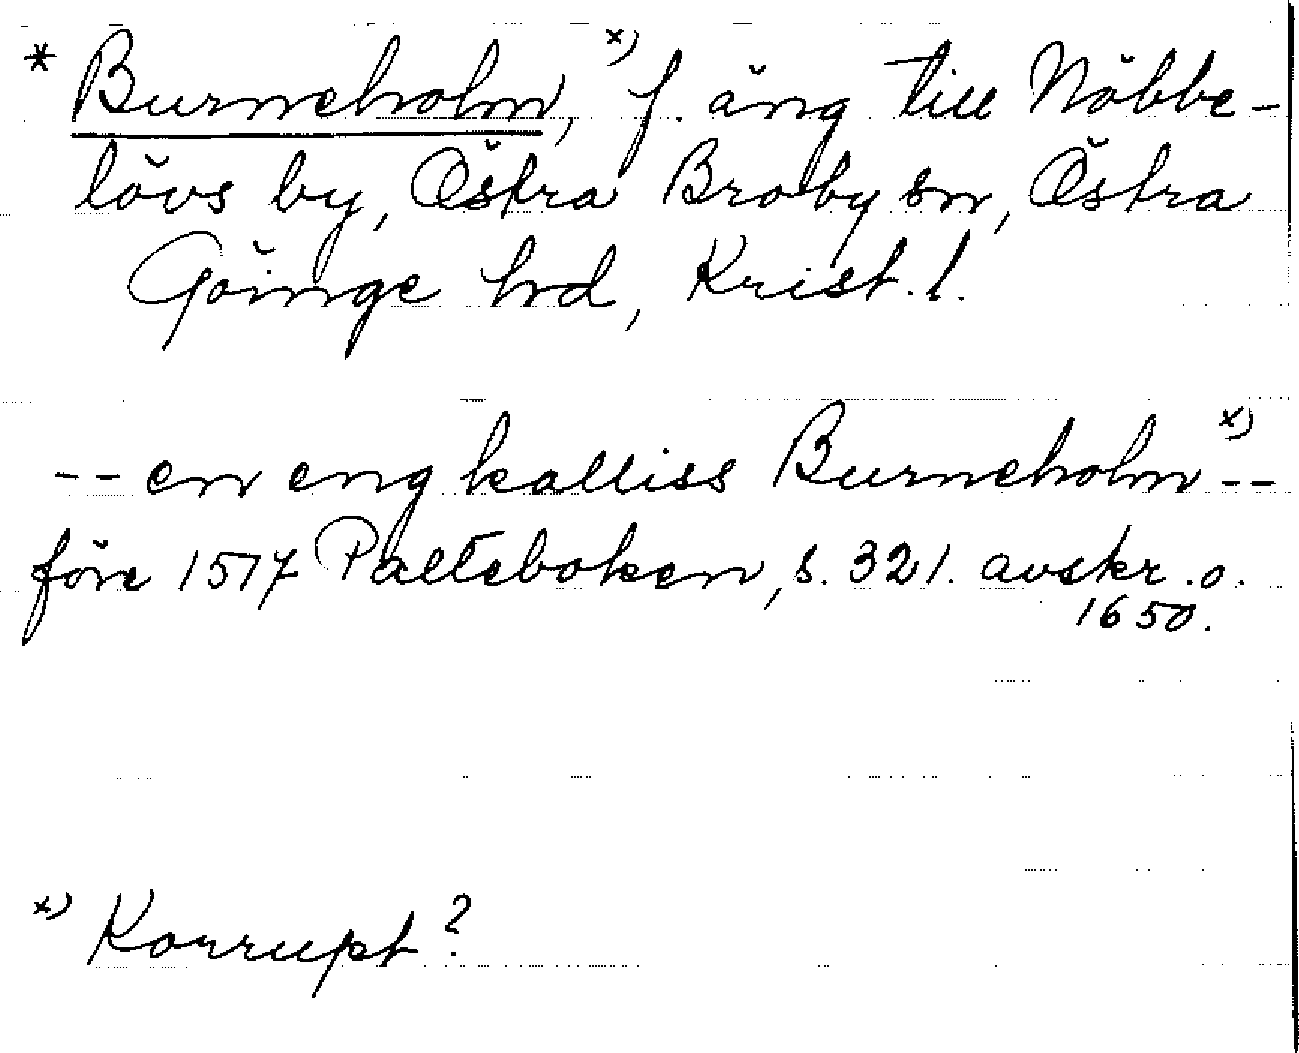 * Burneholm, x) f. äng till Nöbbe-
lövs by, Östra Broby sn, Östra
Göinge hd, Krist. l.
-- en eng kalliss Burneholm x) --
före 1517 Palteboken, s. 321. avskr. o.
1650.
x) Korrupt?